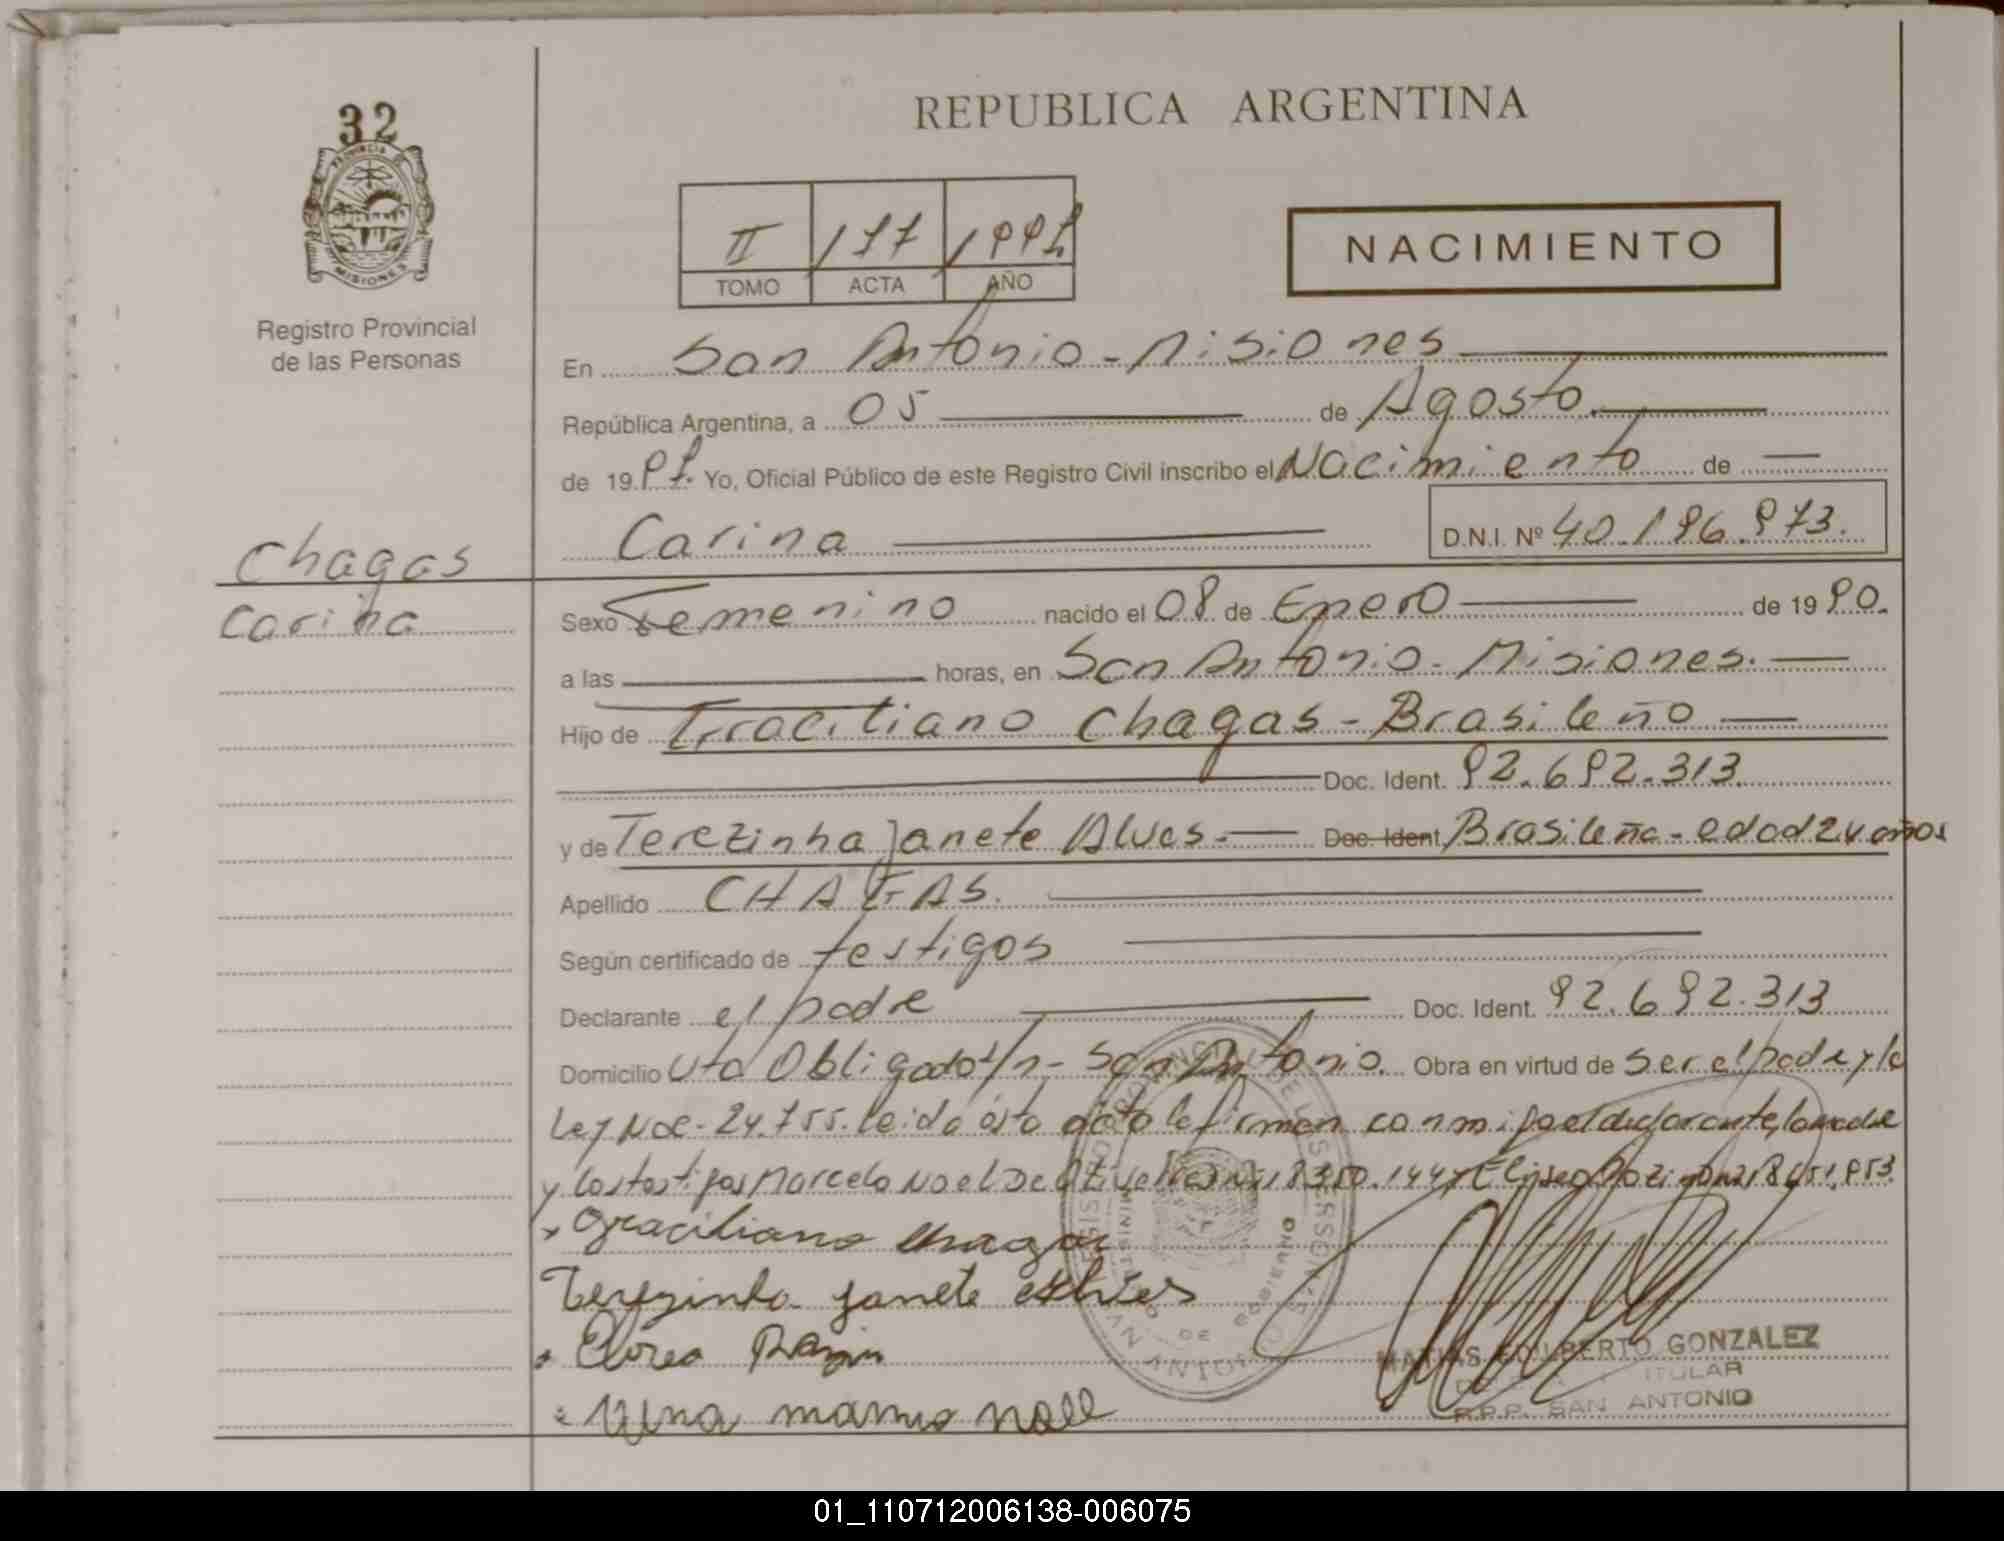 32
PROVINCIA DE
MISIONES
Registro Provincial
de las Personas
Chagas
Carina
REPUBLICA ARGENTINA
II 177 1998
TOMO ACTA AÑO
NACIMIENTO
En San Antonio - Misiones
República Argentina, a 05 de Agosto.
de 19 98. Yo, Oficial Público de este Registro Civil inscribo el Nacimiento de
Carina D.N.I. Nº 40.196.973.
Sexo Femenino nacido el 08 de Enero de 19 90.
a las horas, en San Antonio - Misiones.
Hijo de Graciliano Chagas - Brasileño
Doc. Ident. 92.692.313
y de Terezinha Janete Alves. Doc. Ident. Brasileña - edad 24 años
Apellido CHAGAS.
Según certificado de testigos
Declarante el padre Doc. Ident. 92.692.313
Domicilio Uta Obligado s/n - San Antonio. Obra en virtud de ser el padre y la
Ley Nº 24.755. leida esta acta la firman con migo el declarante, la madre
y los testigos Marcelo Noel De 18.350.144 Eliseo 18.651.953
Graciliano Chagas
Terezinha Janete
MATIAS GUILBERTO GONZALEZ
TITULAR
R.P.P. SAN ANTONIO
MINISTERIO DE GOBIERNO
SAN ANTONIO
01_110712006138-006075